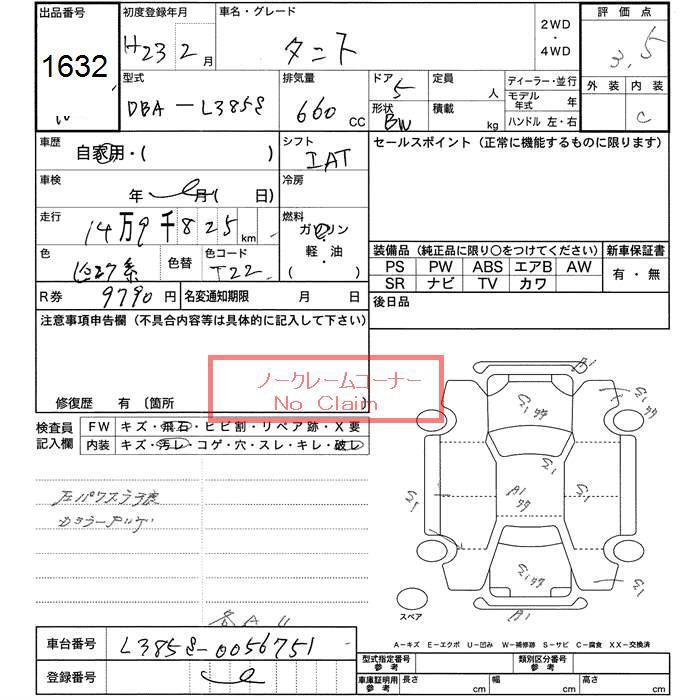 出品番号 初度登録年月 車名・グレード 2WD・4WD 評価点
1632 H23 2月 タント 3.5
型式 排気量 ドア 定員 ディーラー・並行 外装 内装
DBA－L385S 660 CC 5 人 モデル年式 年 C
形状 積載 ハンドル 左・右
BW kg
車歴 シフト セールスポイント（正常に機能するものに限ります）
自家用・( ) IAT
車検 冷房
年 月( 日)
走行 燃料
14万9千825 km ガソリン
軽・油
( )
色 色替 色コード
T22
装備品（純正品に限り○をつけてください） 新車保証書
PS PW ABS エアB AW 有・無
SR ナビ TV カワ
R券 9790円 名変通知期限 月 日 後日品
注意事項申告欄（不具合内容等は具体的に記入して下さい）
ノークレームコーナー
No Claim
修復歴 有 〔箇所 〕
検査員記入欄 FW キズ・飛石・ヒビ割・リペア跡・X要
内装 キズ・汚レ・コゲ・穴・スレ・キレ・破レ
A1
A1
A1
スペア
A－キズ E－エクボ U－凹み W－補修跡 S－サビ C－腐食 XX－交換済
車台番号 L385S-0056751
登録番号
型式指定番号 参考 類別区分番号 参考
車庫証明用 参考 長さ cm 幅 cm 高さ cm